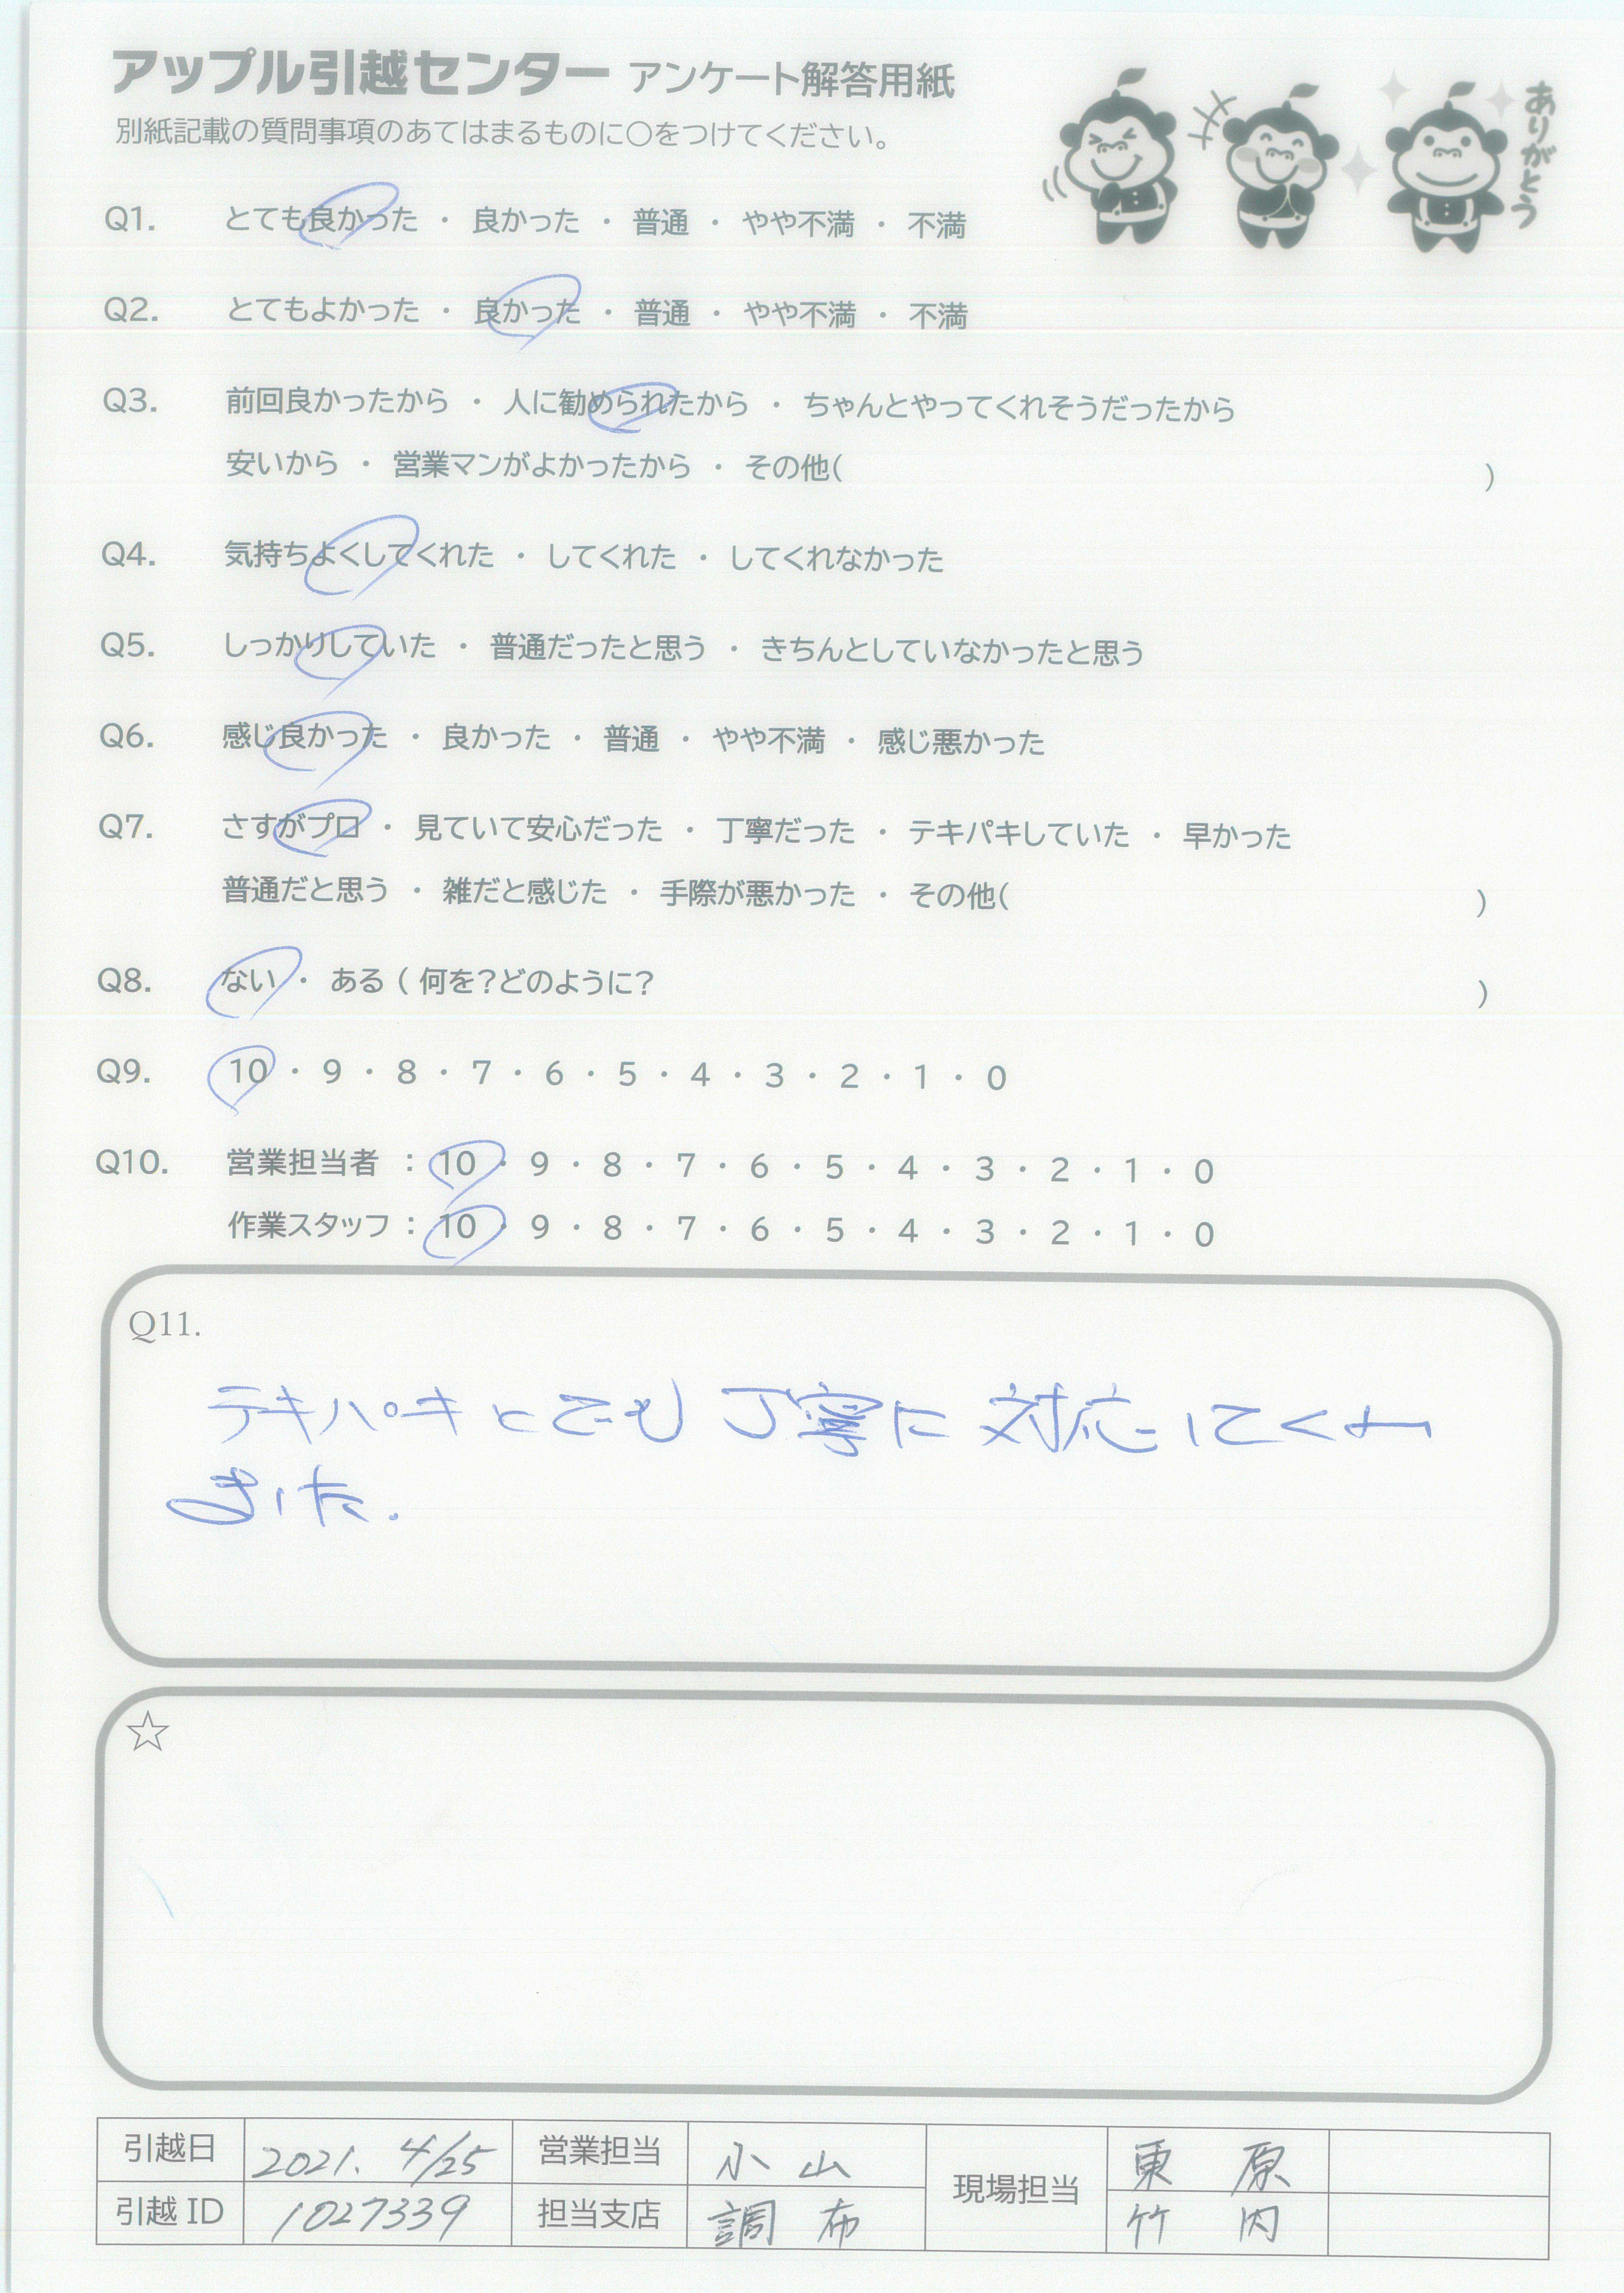 アップル引越センター アンケート解答用紙
別紙記載の質問事項のあてはまるものに〇をつけてください。
ありがとう
Q1. とても良かった ・ 良かった ・ 普通 ・ やや不満 ・ 不満
Q2. とてもよかった ・ 良かった ・ 普通 ・ やや不満 ・ 不満
Q3. 前回良かったから ・ 人に勧められたから ・ ちゃんとやってくれそうだったから
安いから ・ 営業マンがよかったから ・ その他( )
Q4. 気持ちよくしてくれた ・ してくれた ・ してくれなかった
Q5. しっかりしていた ・ 普通だったと思う ・ きちんとしていなかったと思う
Q6. 感じ良かった ・ 良かった ・ 普通 ・ やや不満 ・ 感じ悪かった
Q7. さすがプロ ・ 見ていて安心だった ・ 丁寧だった ・ テキパキしていた ・ 早かった
普通だと思う ・ 雑だと感じた ・ 手際が悪かった ・ その他( )
Q8. ない ・ ある ( 何を?どのように? )
Q9. 10 ・ 9 ・ 8 ・ 7 ・ 6 ・ 5 ・ 4 ・ 3 ・ 2 ・ 1 ・ 0
Q10. 営業担当者 : 10 ・ 9 ・ 8 ・ 7 ・ 6 ・ 5 ・ 4 ・ 3 ・ 2 ・ 1 ・ 0
作業スタッフ : 10 ・ 9 ・ 8 ・ 7 ・ 6 ・ 5 ・ 4 ・ 3 ・ 2 ・ 1 ・ 0
Q11.
テキパキとでも丁寧に対応してくれ
ました.
☆
引越日 2021. 4/25 営業担当 小山 現場担当 東原
引越 ID 1027339 担当支店 調布 竹内